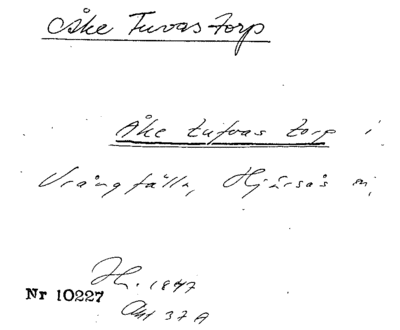 Åke Tuvas torp
Åke tufvas torp i
Vrångfälla, Hjärsås sn,
Hr. 1847
Nr 10227
Akt 37A